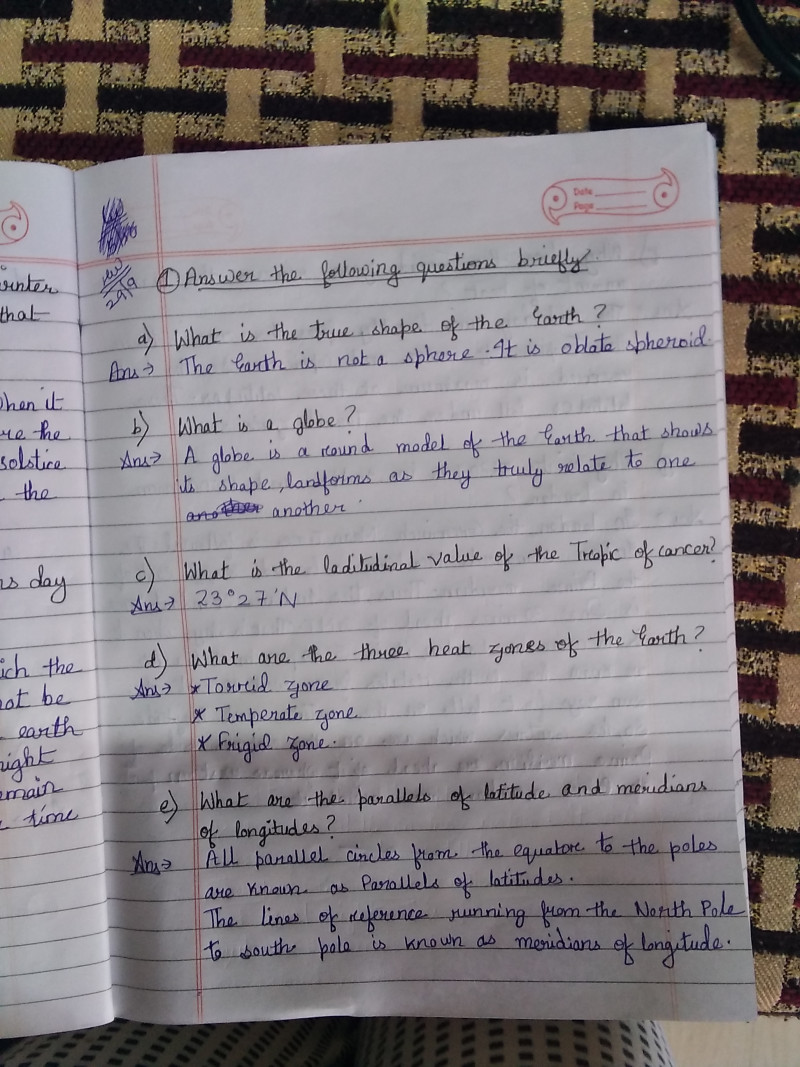 Date
Page
① Answer the following questions briefly
a) What is the true shape of the Earth?
Ans→ The Earth is not a sphere. It is oblate spheroid.
b) What is a globe?
Ans→ A globe is a round model of the Earth that shows
its shape, landforms as they truly relate to one
another.
c) What is the laditudinal value of the Tropic of cancer?
Ans→ 23°27'N
d) What are the three heat zones of the Earth?
Ans→ *Torrid zone
* Temperate zone
* Frigid zone.
e) What are the parallels of latitude and meridians
of longitudes?
Ans→ All parallel circles from the equator to the poles
are known as Parallels of latitudes.
The lines of reference running from the North Pole
to south pole is known as meridians of longitude.
that
the
solstice
the
day
the
not be
earth
time